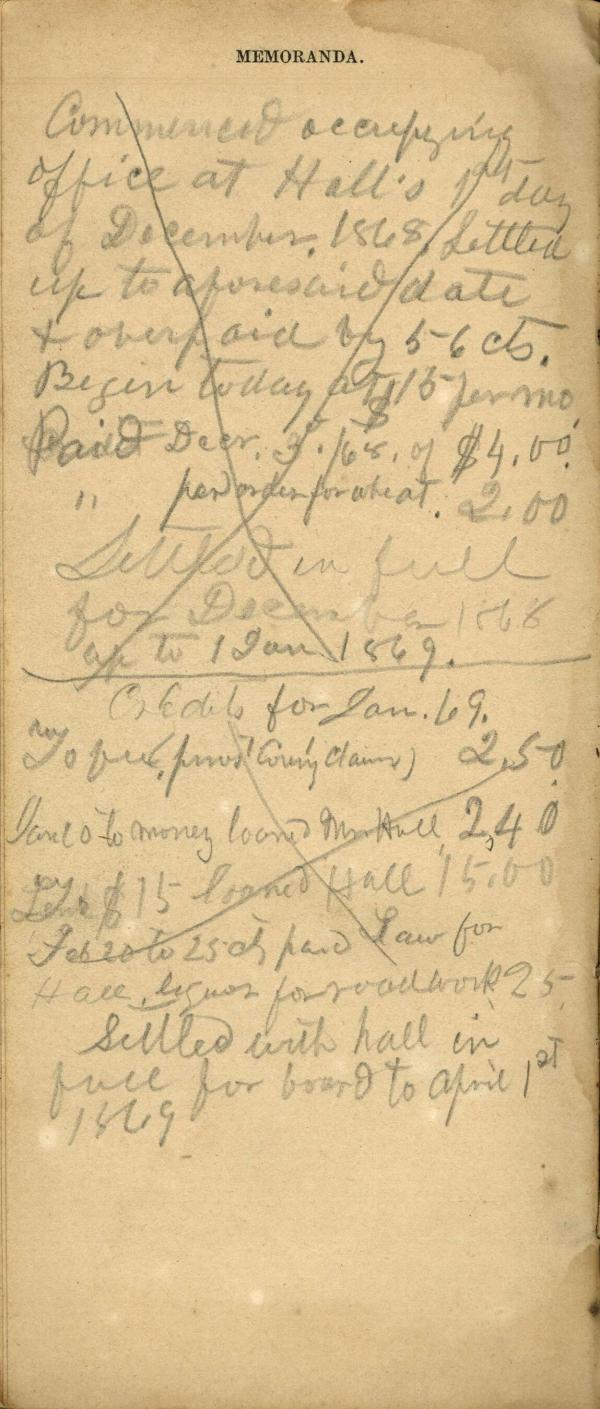 MEMORANDA.
Commenced occupying
office at Hall's 1st day
of December, 1868. Settled
up to aforesaid date
& overpaid by 56 cts.
Begin today at $15 per mo
Paid Decr. 3d. /68. of $4.00.
" per order for wheat. 2.00
Settled in full
for December 1868
up to 1 Jan 1869.
Credits for Jan. 69.
County claim) 2.50
to money loaned Mrs Hall 2,40
$15 loaned Hall 15.00
Feb 20 to 25 cts paid Law for
Hall, liquor for roadwork 25
Settled with hall in
full for board to April 1st
1869